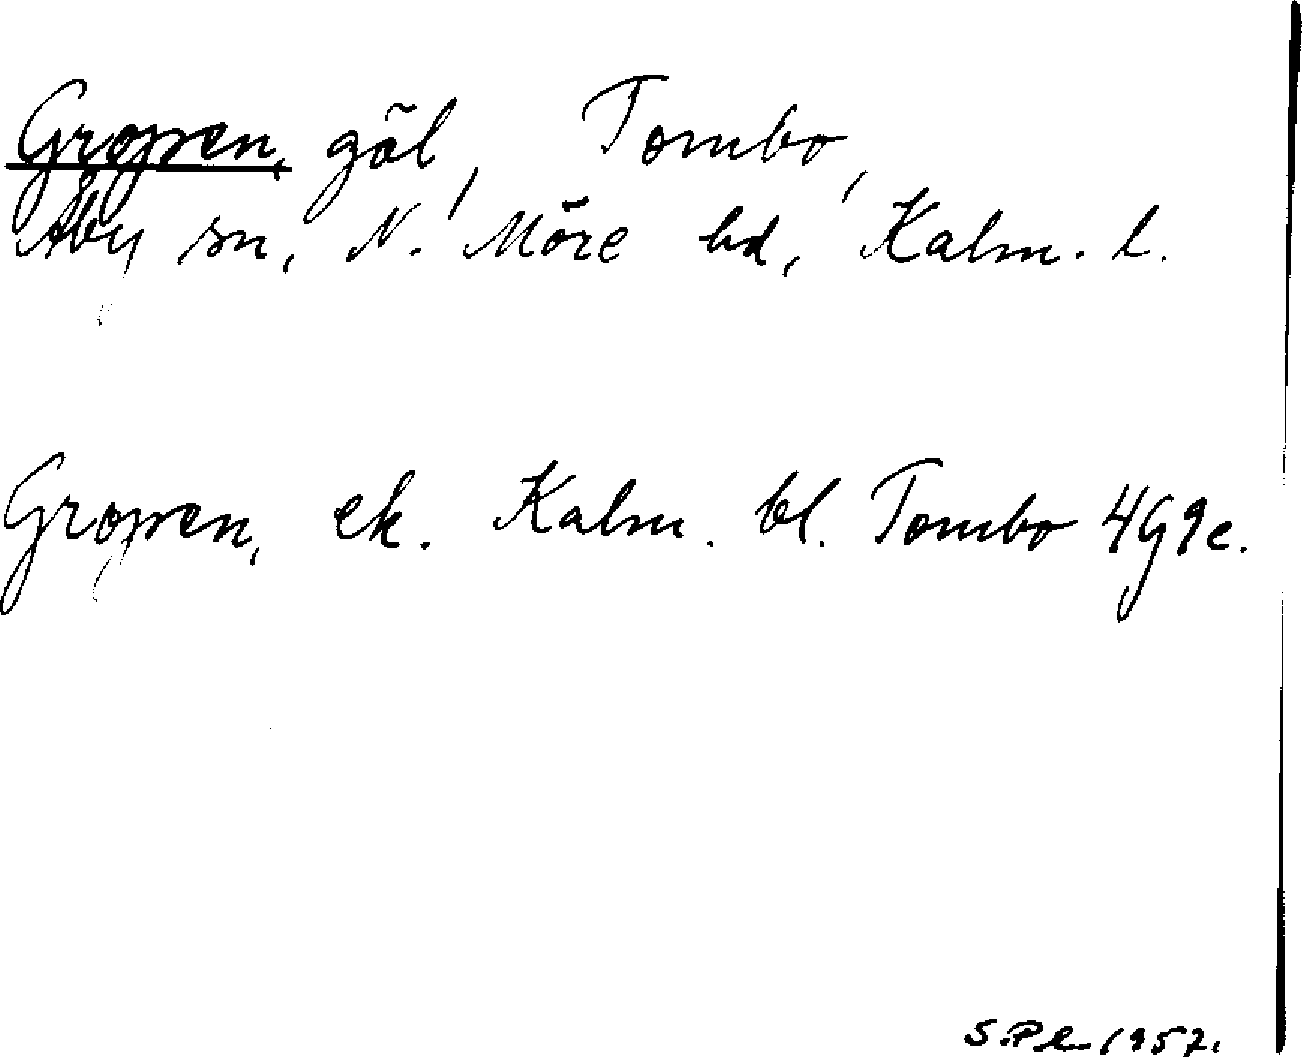 Gropen, göl, Tombo,
Åby sn, N. Möre hd, Kalm. l.
Gropen, ek. Kalm. bl. Tombo 4G9e.
S.Pl. 1957.